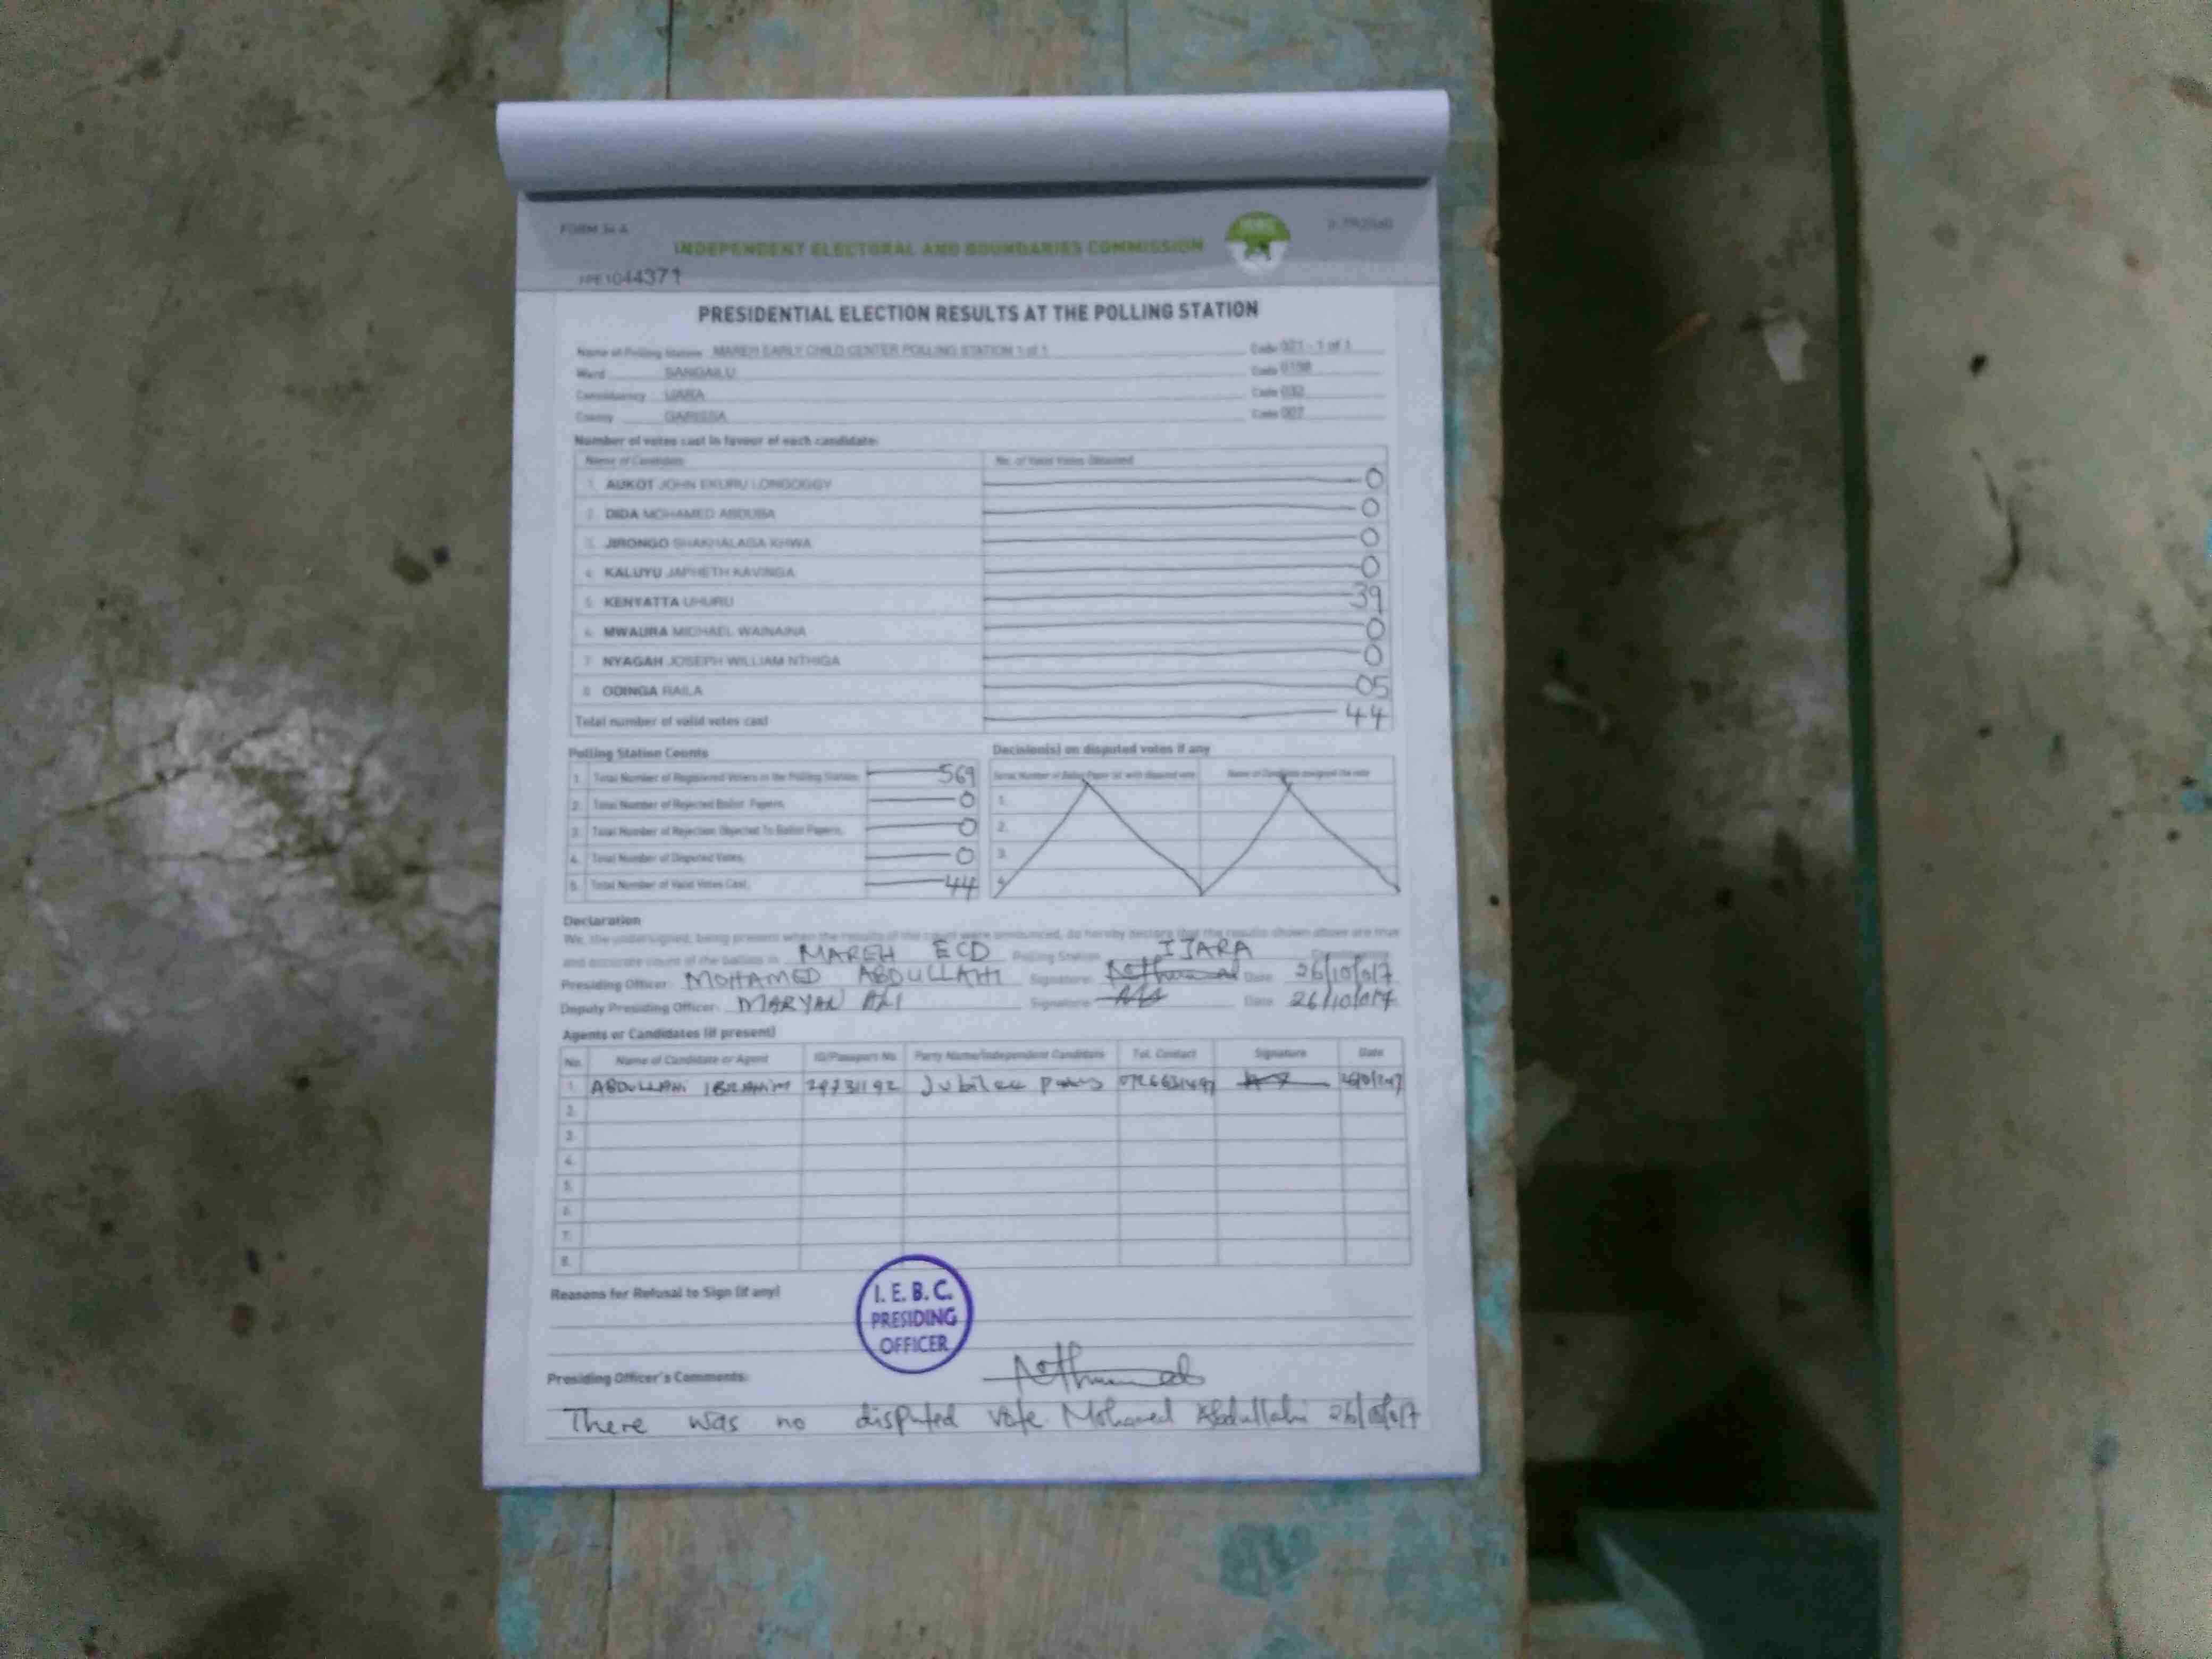 FORM 34 A
INDEPENDENT ELECTORAL AND BOUNDARIES COMMISSION
1044371
PRESIDENTIAL ELECTION RESULTS AT THE POLLING STATION
Name of Polling Station MAREH EARLY CHILD CENTER POLLING STATION 1 of 1 Code 021 - 1 of 1
Ward SANGAILU Code 0158
Constituency IJARA Code 032
County GARISSA Code 007
Number of votes cast in favour of each candidate:
Name of Candidate No. of Valid Votes Obtained
1. AUKOT JOHN EKURU LONGOGGY 0
2. DIDA MOHAMED ABDUBA 0
3. JIRONGO SHAKHALAGA KHWA 0
4. KALUYU JAPHETH KAVINGA 0
5. KENYATTA UHURU 39
6. MWAURA MICHAEL WAINAINA 0
7. NYAGAH JOSEPH WILLIAM NTHIGA 0
8. ODINGA RAILA 05
Total number of valid votes cast 44
Polling Station Counts
1. Total Number of Registered Voters in the Polling Station 569
2. Total Number of Rejected Ballot Papers, 0
3. Total Number of Rejection Objected To Ballot Papers, 0
4. Total Number of Disputed Votes, 0
5. Total Number of Valid Votes Cast, 44
Decision(s) on disputed votes if any
Serial Number of Ballot Paper (s) with disputed vote Name of Candidate assigned the vote
1.
2.
3.
4.
Declaration
We, the undersigned, being present when the results of the count were announced, do hereby declare that the results shown above are true
and accurate count of the ballots in MAREH ECD Polling Station IJARA
Presiding Officer: MOHAMED ABDULLAHI Signature: Date 26/10/017
Deputy Presiding Officer: MARYAN ALI Signature: Date 26/10/017
Agents or Candidates (if present)
No. Name of Candidate or Agent ID/Passport No. Party Name/Independent Candidate Tel. Contact Signature Date
1. ABDULLAHI IBRAHIM 29731192 Jubilee
2.
3.
4.
5.
6.
7.
8.
Reasons for Refusal to Sign (if any)
I. E. B. C.
PRESIDING
OFFICER
Presiding Officer's Comments:
There was no disputed vote Mohamed Abdullahi 26/10/017